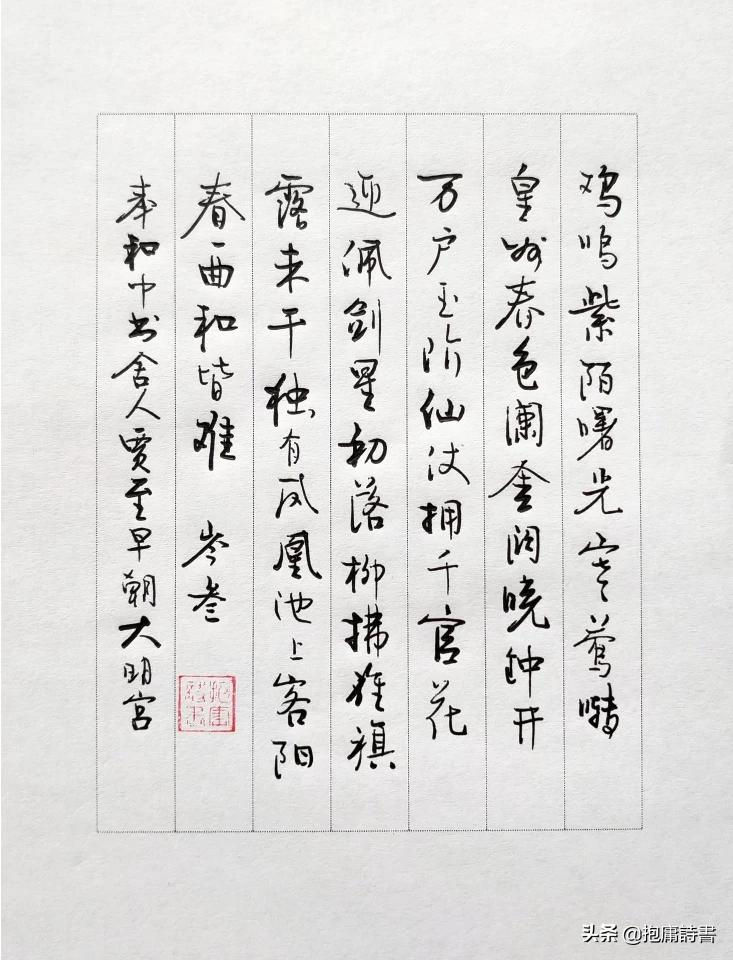 鸡鸣紫陌曙光寒莺啭
皇州春色澜金阙晓钟开
万户玉阶仙仗拥千官花
迎佩剑星初落柳拂旌旗
露未干独有凤凰池上客阳
春一曲和皆难 岑参
奉和中书舍人贾至早朝大明宫
抱庸詩書
头条 @抱庸詩書